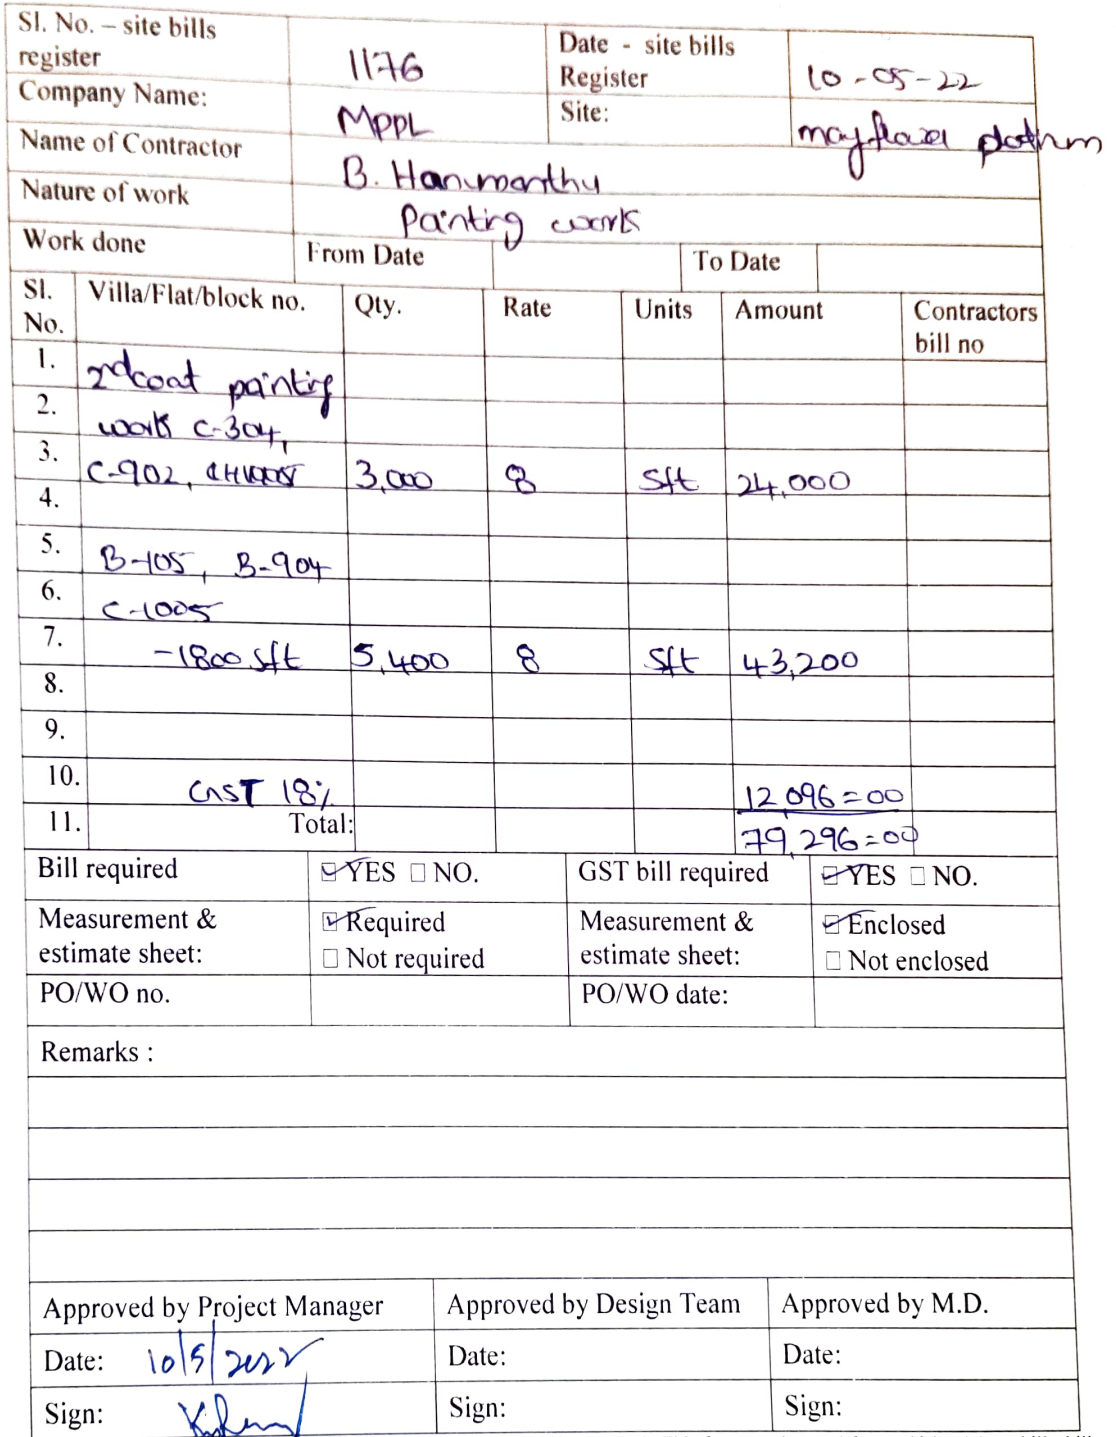 Sl. No. – site bills register 1176 Date - site bills Register 10-05-22
Company Name: MPPL Site: mayflower
Name of Contractor B. Hanumanthu
Nature of work Painting work
Work done From Date To Date
Sl. No. Villa/Flat/block no. Qty. Rate Units Amount Contractors bill no
1. 2nd coat painting
2. work C-304,
3. C-902, 3,000 8 Sft 24,000
4.
5. B-105, B-904
6. C-1005
7. -1800 Sft 5,400 8 Sft 43,200
8.
9.
10. GST 18% 12,096=00
11. Total: 79,296=00
Bill required YES NO. GST bill required YES NO.
Measurement & estimate sheet: Required Not required Measurement & estimate sheet: Enclosed Not enclosed
PO/WO no. PO/WO date:
Remarks :
Approved by Project Manager Approved by Design Team Approved by M.D.
Date: 10/5/2022 Date: Date:
Sign: Sign: Sign: